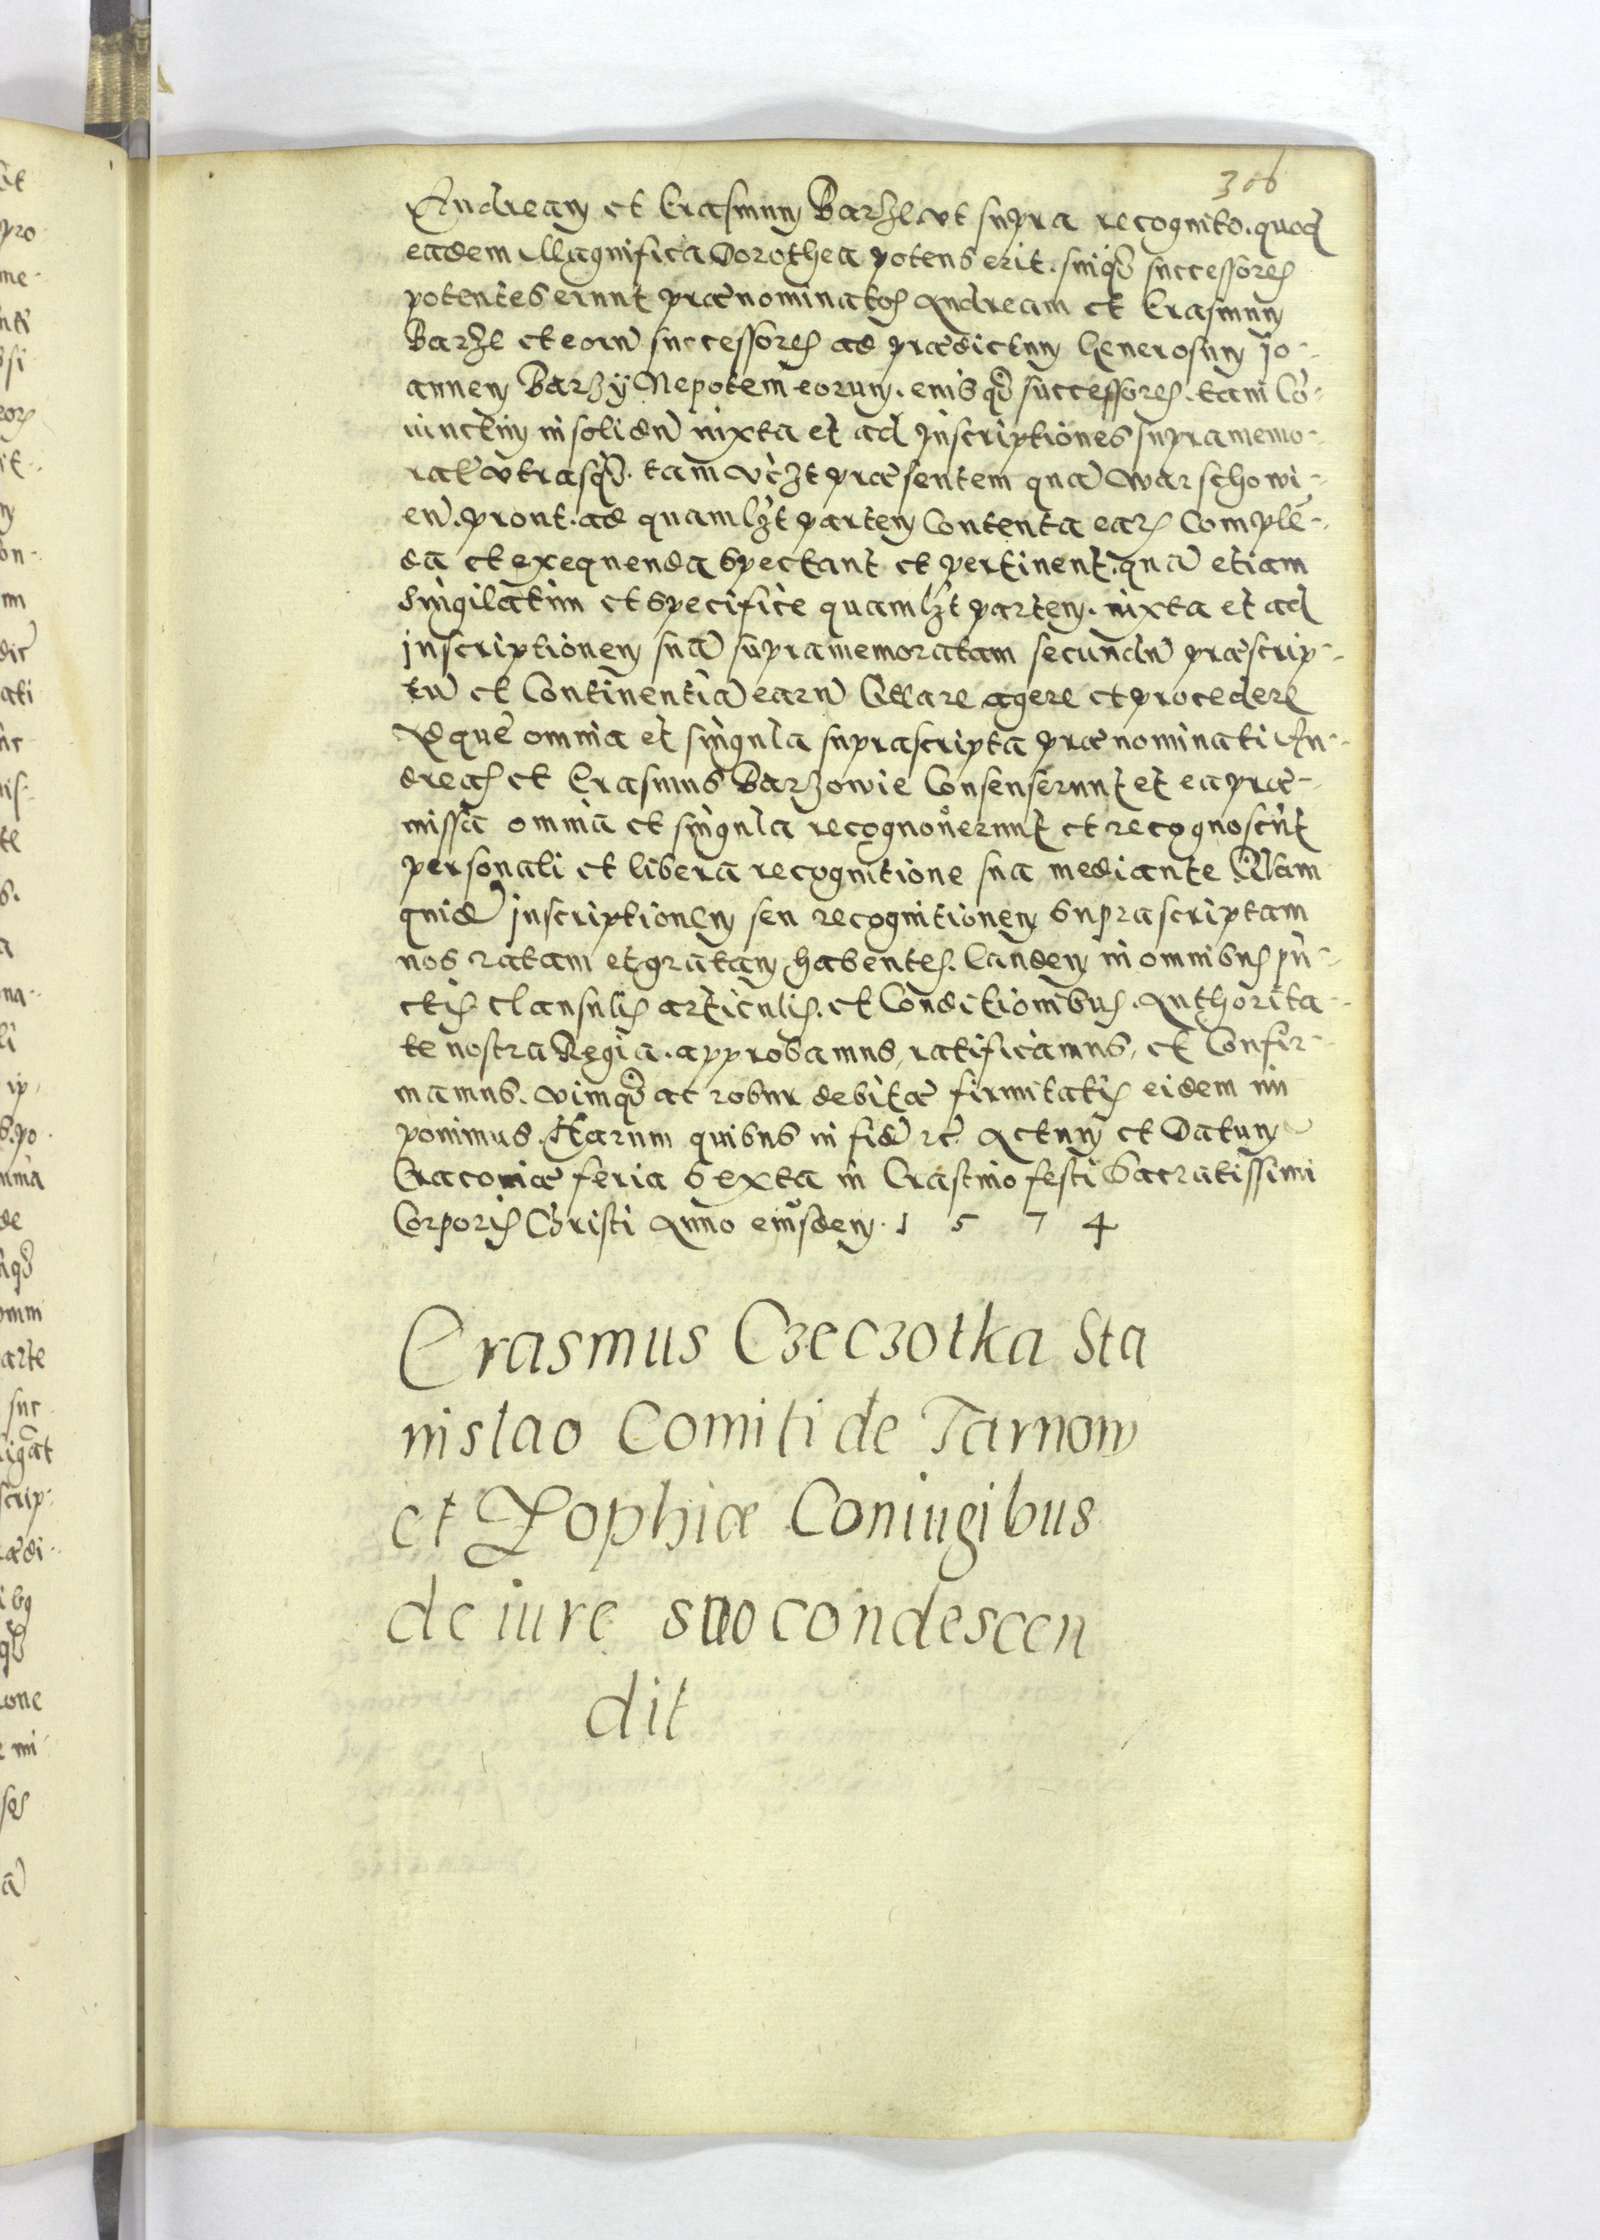 306
Andream et Erasmum Barzhe ut supra recognito. quod
eadem Magnifica Dorothea potens erit. suiq₃ successores
potentes erunt prænominatos Andream et Erasmum
Barzhe et eorū successores ad prædictum Generosum Jo-
annem Barzÿ Nepotem eorum. eiusq₃ successores. tam Co-
niunctim in solidū iuxta et ad Inscriptiones supramemo-
rat̄ utrasq₃. tam vczt præsentem quā Warschowi-
eñ. prout. ad quamlzt partem Contenta earum Complē-
da et exequenda spectant et pertinent. quā etiam
singilatim et specifice quamlzt partem. iuxta et ad
inscriptionem suā supramemoratam secundū præscrip-
tū et Continentiā earū Cittare agere et procedere
Ad que omnia et singula suprascripta prænominati An-
dreas et Erasmus Barzowie Consenserunt et ea præ-
missa omnia et singula recognoverunt et recognoscūt
personali et libera recognitione sua mediante Quam
quidē inscriptionem seu recognitionem suprascriptam
nos ratam et gratam habentes. Eandem in omnibus pū-
ctis clausulis articulis. et Conditionibus. Authorita-
te nostra Regia. approbamus, ratificamus, et Confir-
mamus. vimq₃ ac robur debitæ firmitatis eidem im
ponimus. Harum quibus in fidē rc̄. Actum et Datum
Cracoviæ feria sexta in Crastino festi Sacratissimi
Corporis Christi Anno eiusdem. 1 5 7 4
Erasmus Czeczotka Sta
nislao Comiti de Tarnow
et Zophiæ Coniugibus
de iure suo condescen
dit